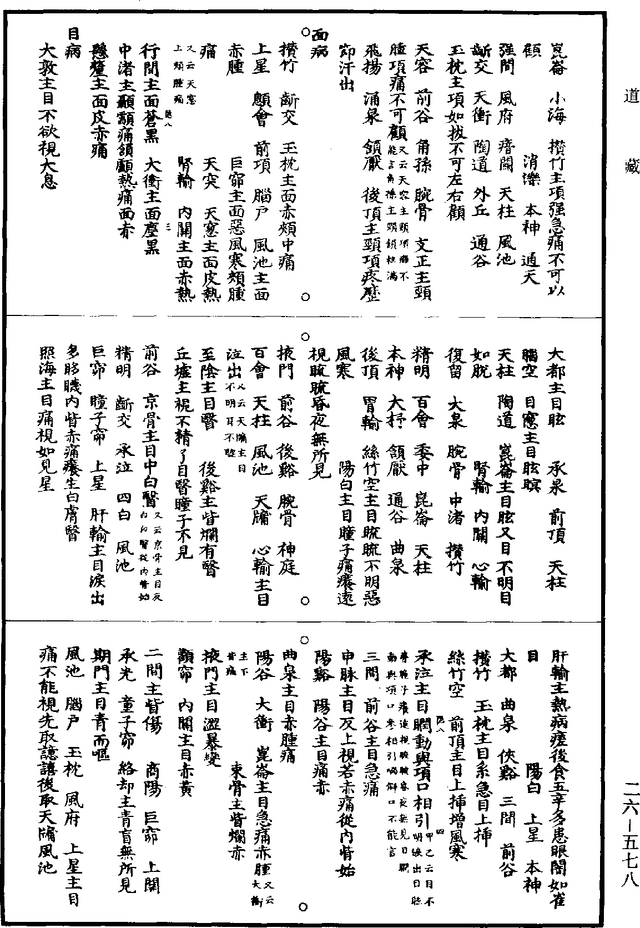 道藏
崑崙　小海　攢竹主項强急痛不可以
顧　消濼　本神　通天
强間　風府　瘖門　天柱　風池
齗交　天衝　陶道　外丘　通谷
玉枕主項如拔不可左右顧
天容　前谷　角孫　腕骨　支正主頸
腫項痛不可顧又云天容主頸項癰不能言角孫主頸頷柱滿
飛揚　涌泉　頷厭　後頂主頸項疼歷
節汗出
面病
攢竹　齗交　玉枕主面赤頰中痛
上星　顖會　前頂　腦戶　風池主面
赤腫　巨窌主面惡風寒頰腫
痛　天突　天窻主面皮熱
又云天窻上頰腫痛　腎輸　内關主面赤熱
行間主面蒼黑　大衝主面塵黑
中渚主顳顬痛頷顱熱痛面赤
懸釐主面皮赤痛
目病
大敦主目不欲視大息
大都主目眩　承泉　前頂　天柱
腦空　目窻主目眩瞑
天柱　陶道　崑崙主目眩又目不明目
如脱　腎輸　内關　心輸
復留　大泉　腕骨　中渚　攢竹
精明　百會　委中　崑崙　天柱
本神　大抒　頷厭　通谷　曲泉
後頂　胃輸　絲竹空主目𥆨𥆨不明惡
風寒　陽白主目瞳子痛癢遠
視𥆨𥆨昏夜無所見
掖門　前谷　後谿　腕骨　神庭
百會　天柱　風池　天牖　心輸主目
泣出又云天牖主目不明耳不聰
至陰主目瞖　後谿主眥爛有瞖
丘墟主視不精了目瞖瞳子不見
前谷　京骨主目中白瞖又云京骨主目反白白瞖從内眥始
精明　齗交　承泣　四白　風池
巨窌　瞳子窌　上星　肝輸主目淚出
多眵䁾内眥赤痛癢生白膚瞖
照海主目痛視如見星
肝輸主熱病瘥後食五辛多患眼闇如雀
目　陽白　上星　本神
大都　曲泉　俠谿　三間　前谷
攢竹　玉枕主目系急目上插
絲竹空　前頂主目上插增風寒
承泣主目瞤動與項口相引
三間　前谷主目急痛
申脉主目反上視若赤痛從内眥始
陽谿　陽谷主目痛赤
曲泉主目赤腫痛
陽谷　大衝　崑崙主目急痛赤腫又云大衝主下眥痛　束骨主眥爛赤
掖門主目澀暴變
顴窌　内關主目赤黄
二間主眥傷　商陽　巨窌　上關
承光　童子窌　絡却主青盲無所見
期門主目青而嘔
風池　腦戶　玉枕　風府　上星主目
痛不能視先取譩譆後取天牖風池
二六—五七八